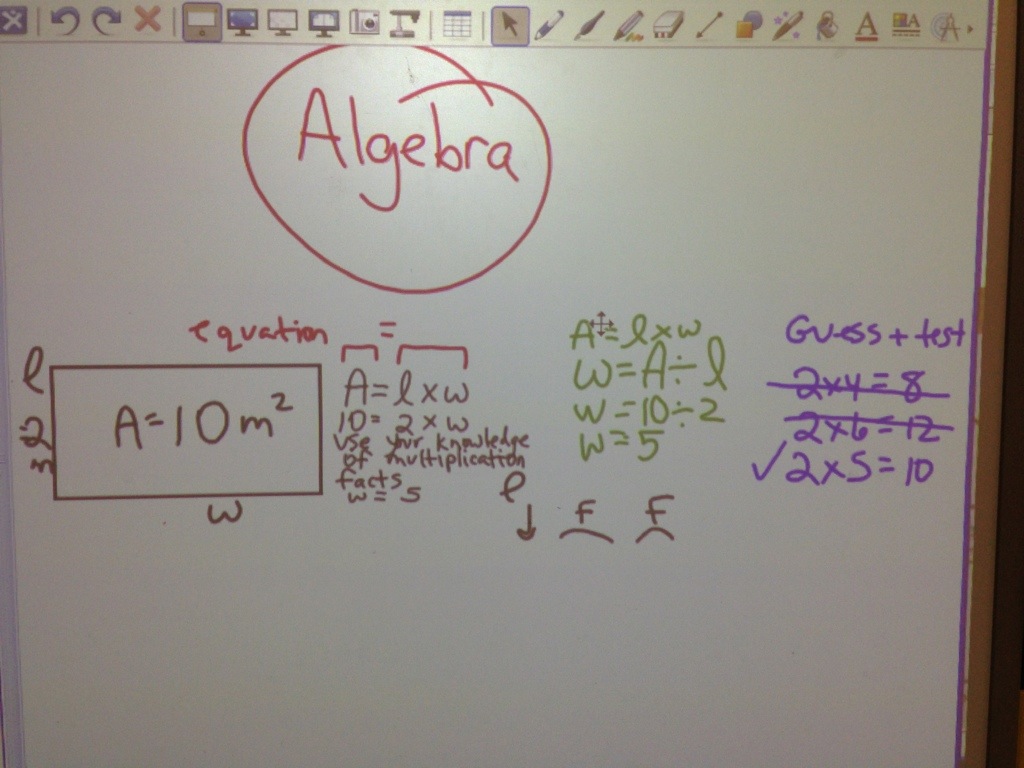 Algebra
equation =
l
2
m
A=10m²
w
A=l×w
10=2×w
use your knowledge
of multiplication
facts
w=5
A=l×w
w=A÷l
w=10÷2
w=5
P
↓ F F
Guess + test
2×4=8
2×6=12
✓2×5=10